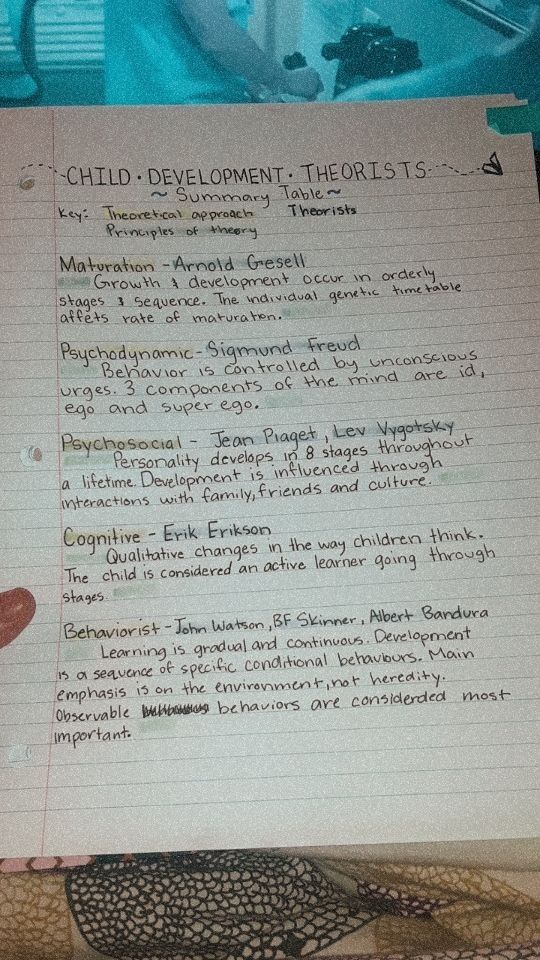 CHILD · DEVELOPMENT · THEORISTS
~ Summary Table ~
Key: Theoretical approach Theorists
Principles of theory
Maturation - Arnold Gesell
Growth & development occur in orderly
stages & sequence. The individual genetic timetable
affets rate of maturation.
Psychodynamic - Sigmund Freud
Behavior is controlled by unconscious
urges. 3 components of the mind are id,
ego and super ego.
Psychosocial - Jean Piaget, Lev Vygotsky
Personality develops in 8 stages throughout
a lifetime. Development is influenced through
interactions with family, friends and culture.
Cognitive - Erik Erikson
Qualitative changes in the way children think.
The child is considered an active learner going through
stages.
Behaviorist - John Watson, BF Skinner, Albert Bandura
Learning is gradual and continuous. Development
is a sequence of specific conditional behaviours. Main
emphasis is on the environment, not heredity.
Observable behaviors are considerded most
important.